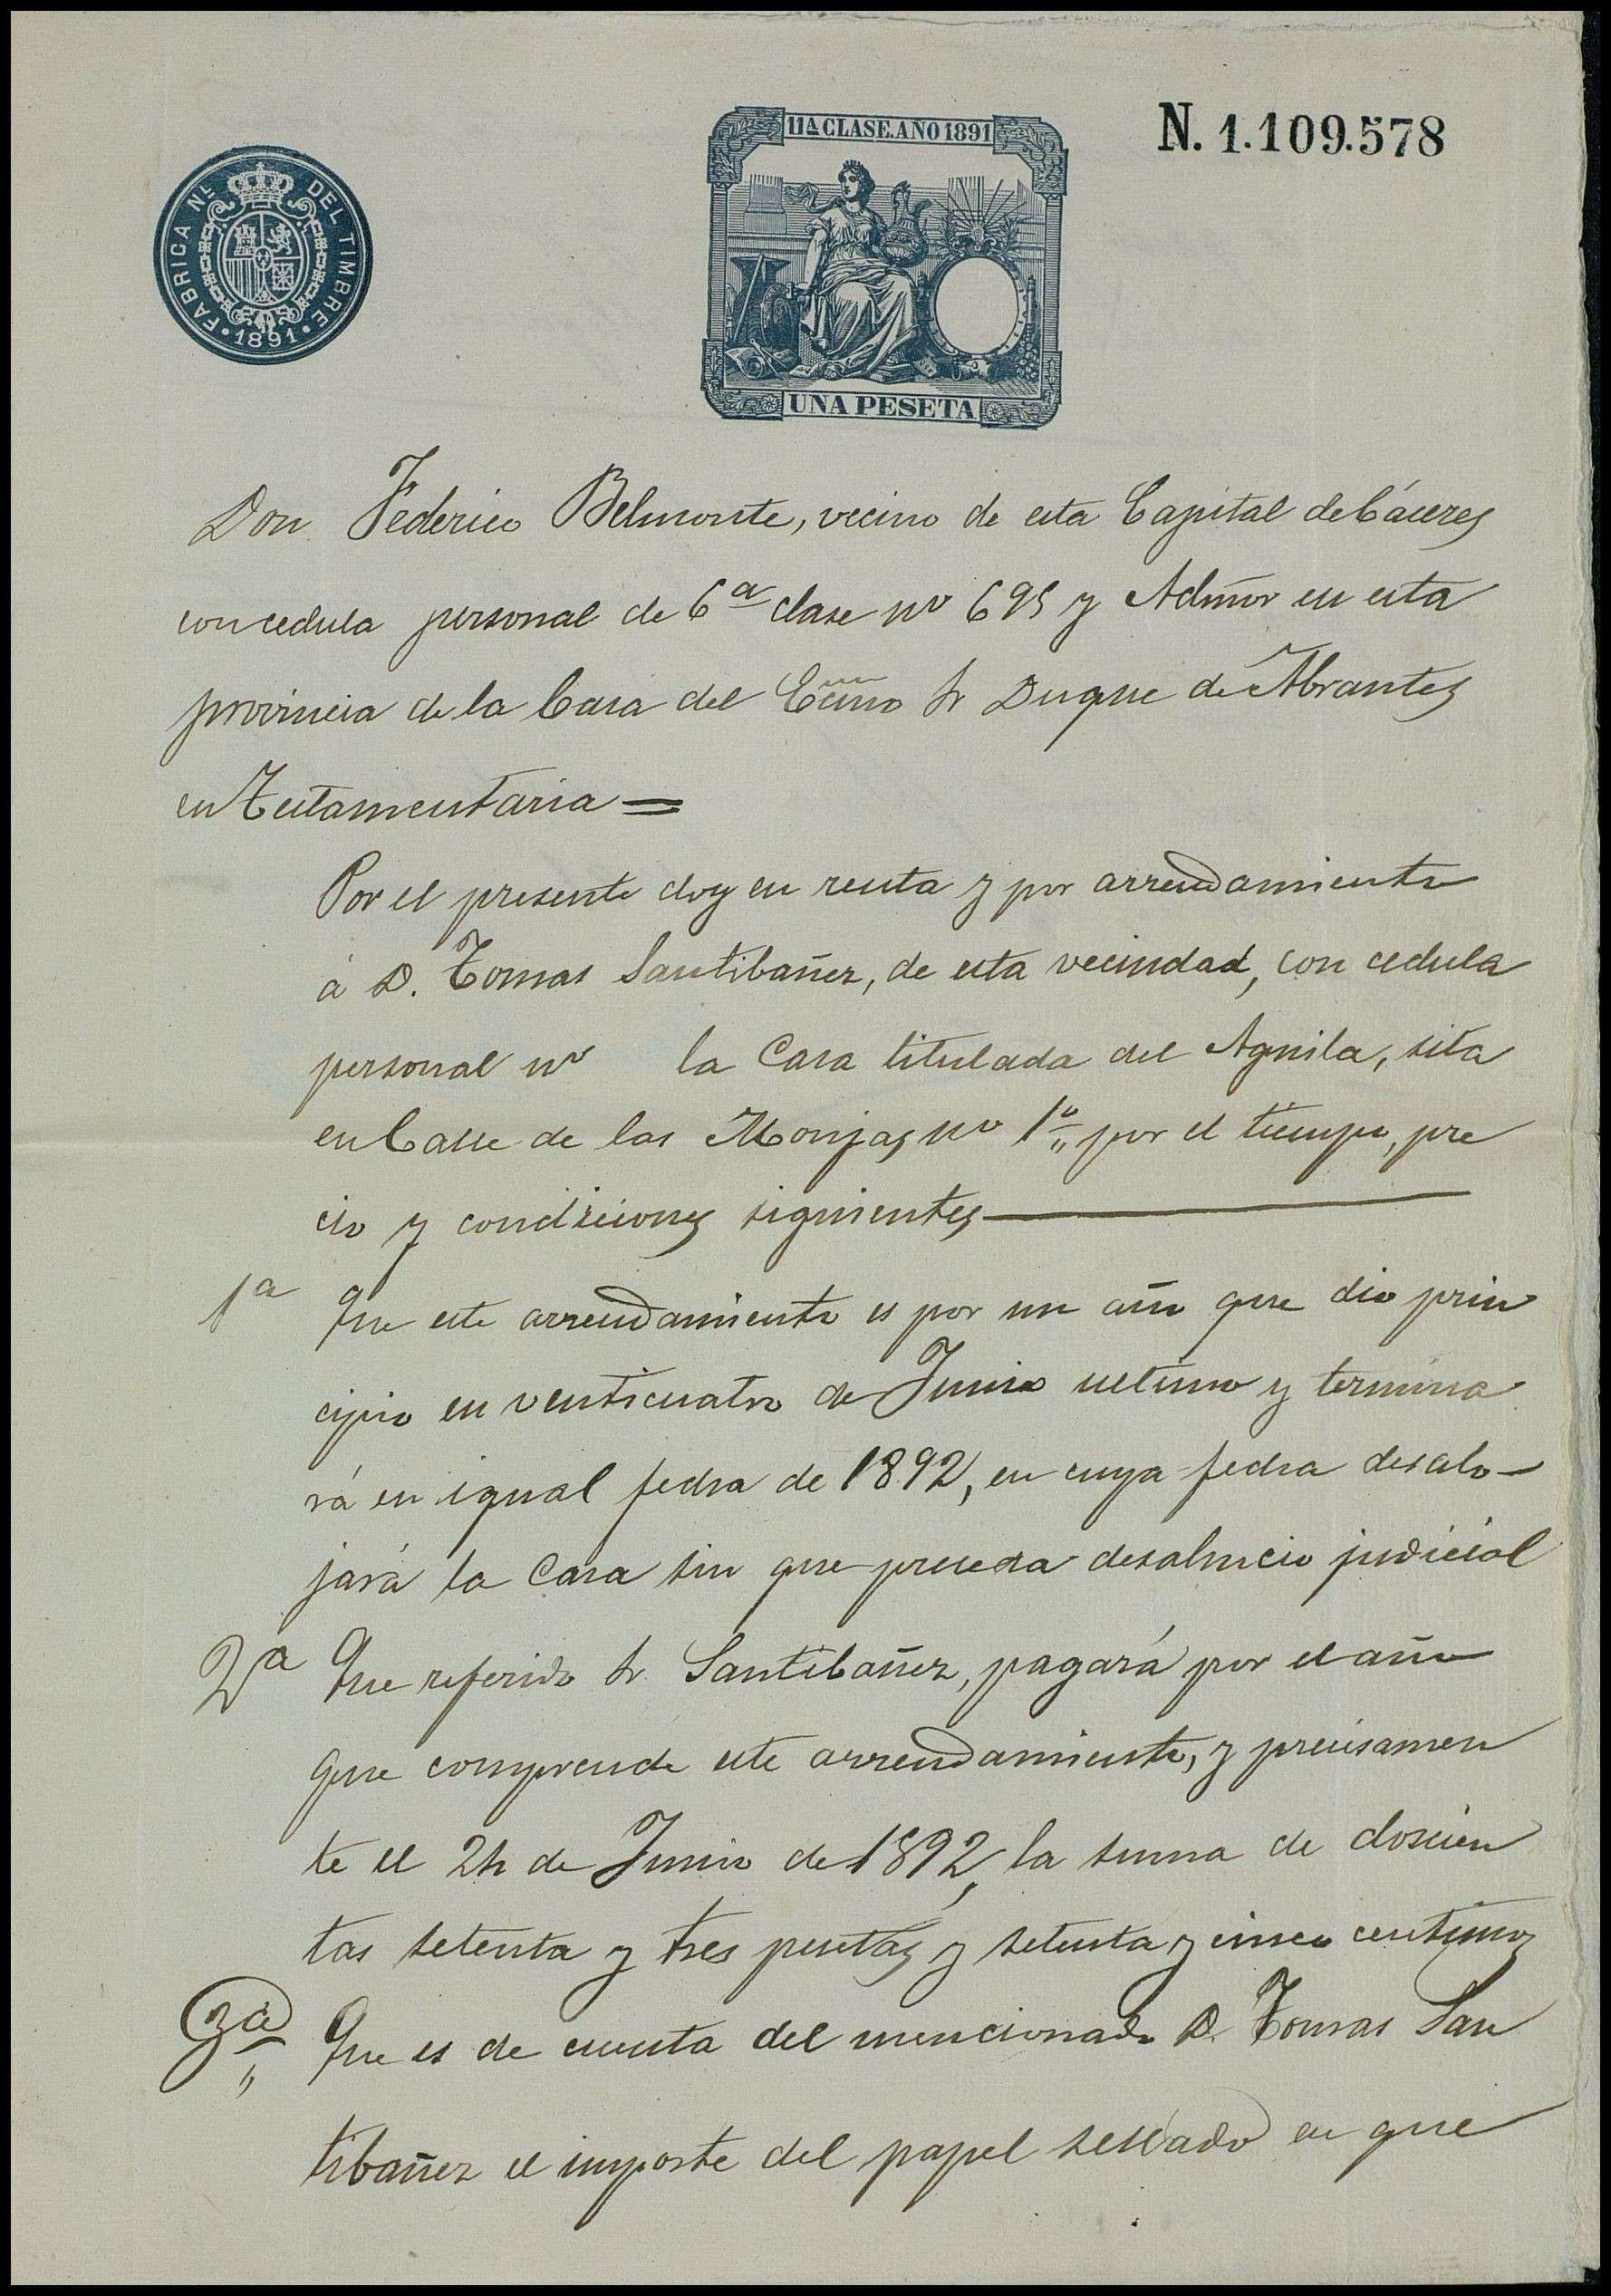 11ª CLASE. AÑO 1891
N. 1.109.578
FABRICA Nᴸ DEL TIMBRE
· 1891 ·
UNA PESETA
Don Federico Belmonte, vecino de esta Capital de Cáceres
con cedula personal de 6ª clase nº 695 y Admor en esta
provincia de la Casa del Ecmo Sr Duque de Abrantes
en Testamentaria =
Por el presente doy en renta y por arrendamiento
á D. Tomas Santibañez, de esta vecindad, con cedula
personal nº la Casa titulada del Aguila, sita
en Calle de las Monjas nº 1º por el tiempo, pre
cio y condiciones siguientes
1ª Que este arrendamiento es por un año que dio prin
cipio en venticuatro de Junio ultimo y termina
rá en igual fecha de 1892, en cuya fecha desalo-
jará la Casa sin que preceda desahucio judicial
2ª Que referido Sr. Santibañez, pagará por el año
que comprende este arrendamiento, y precisamen
te el 24 de Junio de 1892, la suma de doscien
tas setenta y tres pesetas y setenta y cinco centimos
3ª Que es de cuenta del mencionado D. Tomas San
tibañez el importe del papel sellado en que